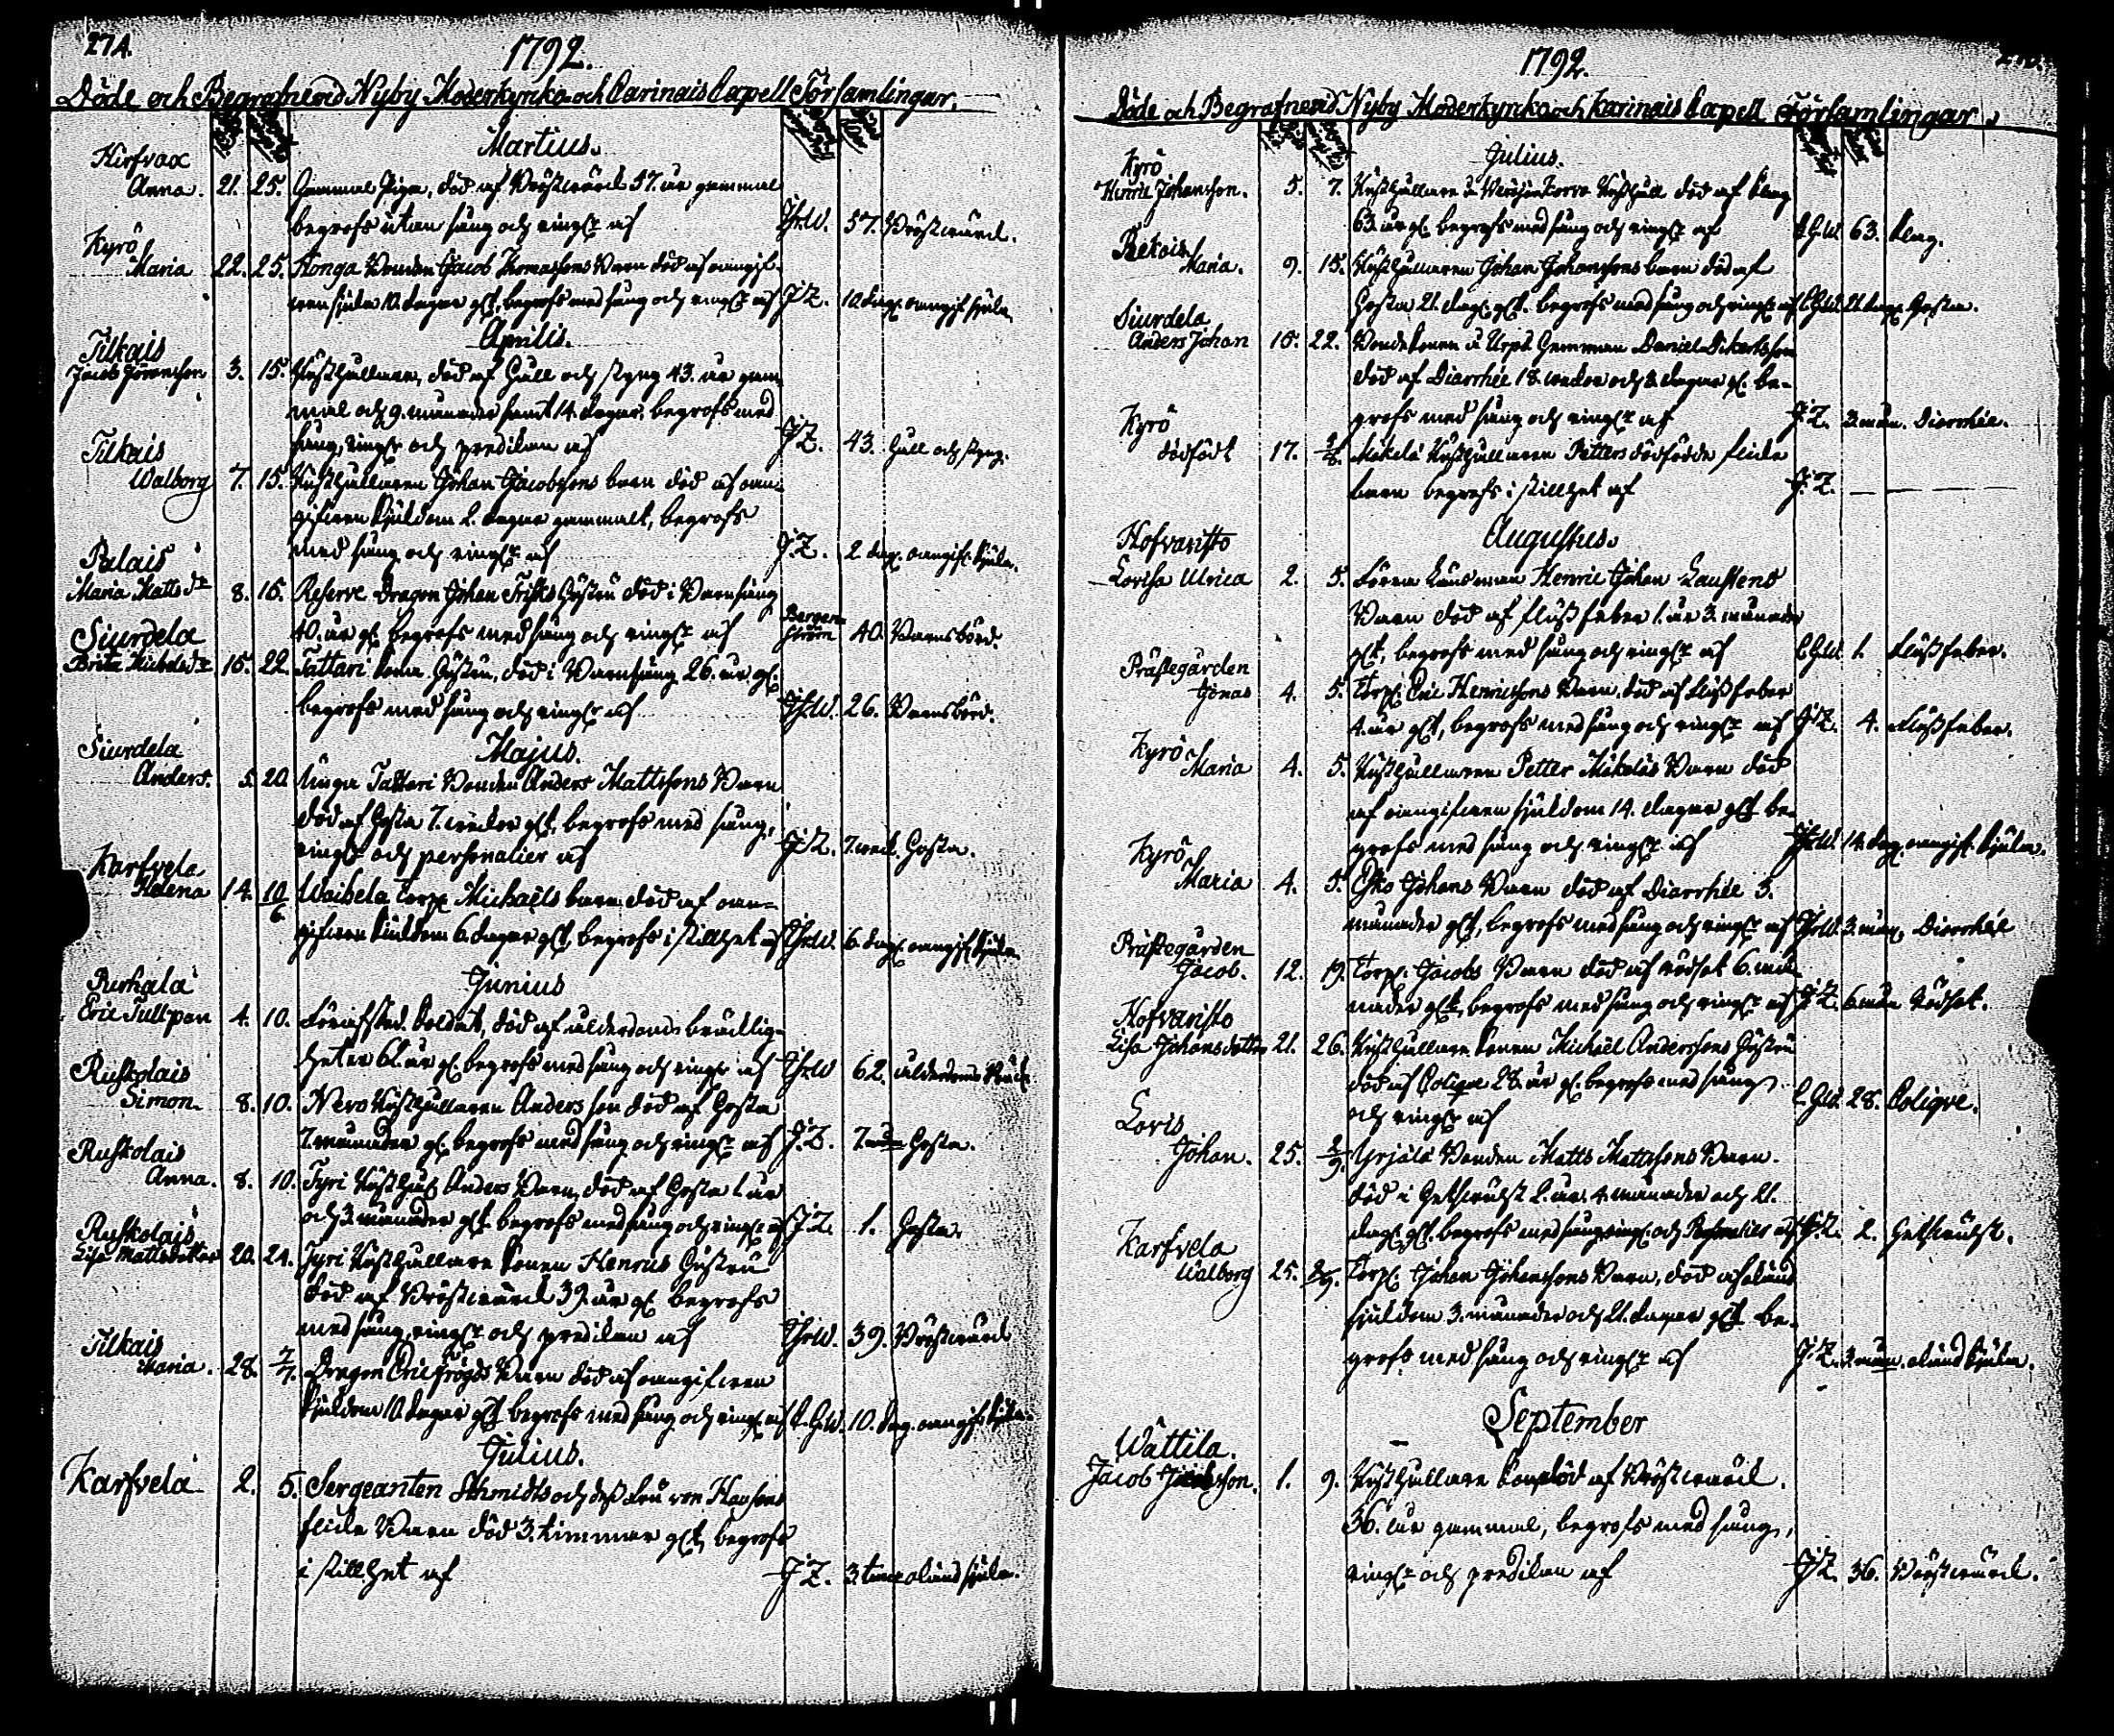 274.
1792.
Döde och Begrafne vid Nyby Moderkyrko och Carinais Capell Församlingar.
Martius.
Kirfvax
Anna. 21. 25. Gammal Piga, död af Bröstwärck 57. år gammal
begrofs utan sång och ringn:g af JhW. 57. Bröstwärck.
Kyrö
Maria 22. 25. Honga Bonden Jacob Thomassons Barn död af oangif-
wen siukd: 10. dagar g:lt, begrofs med sång och ringn:g af JZ. 10 dag. oangif. siukd.
Aprilis.
Tilkais
Jacob Jöranson 3. 15. Rusthållare, död af Håll och styng 43. år gam-
mal och 9. månader samt 14. dagar, begrofs med
sång, ringn:g och predikan af JZ. 43. Håll och styng.
Tilkais
Walborg 7. 15. Rusthållaren Johan Jacobssons barn död af oan-
gifwen siukdom 2. dagar gammalt, begrofs
med sång och ringn:g af JZ. 2 dag. oangif. siukd.
Palais
Maria Matts dr 8. 15. Reserve Dragon Johan Frisks Hustru död i Barnsäng
40. år gl. begrofs med sång och ringn:g af Bergen-
ström 40. Barnsbörd.
Siurdela
Brita Michelsdr 15. 22. Tattari Hustru, död i Barnsäng 26. år gl.
begrofs med sång och ringn:g af JhW. 26. Barnsbörd.
Majus.
Siurdela
Anders. 5. 20. Unga Tattari Bonden Anders Mattssons Barn
död af Hosta 7. weckor g:lt, begrofs med sång,
ringn:g och personalier af JZ. 7. weck. Hosta.
Karfvela
Helena 14. 10/6. Waihela Torp. Michaels barn död af oan-
gifwen siukdom 6 dagar g:lt, begrofs i stillhet af JhW. 6. dag. oangif. siukd.
Junius
Rurhala
Eric Tullpan 4. 10. Afskedad Soldat, död af ålderdoms bräcklig-
heter 62. år gl. begrofs med sång och ringn:g af JhW 62. ålderdoms bräck.
Ruskolais
Simon. 8. 10. Nero Rusthållaren Anders son död af Hosta
7. månader gl. begrofs med sång och ringn:g af JZ. 7 mån Hosta.
Ruskolais
Anna. 8. 10. Tyri Rusthål. Anders Barn, död af Hosta 1. år
och 3 månader g:lt. begrofs med sång och ringn:g af JZ. 1. Hosta.
Ruskolais
Lisa Mattsdotter 20. 24. Tyri Rusthållare Sonen Henrics Hustru
död af Bröstwärck 39. år gl. begrofs
med sång, ringn:g och predikan af JhW. 39. Bröstwärck
Tilkais
Maria. 28. 7/7. Dragon Eric Frögds Barn död af oangifwen
siukdom 10. dagar g:lt begrofs med sång och ringn:g af C.GW. 10. dag. oangif. siukd.
Julius.
Karfvela 2. 5. Sergeanten Schmidts och dess Fru von Hausens
flicke Barn död 3. timmar g:lt, begrofs
i stillhet af JZ. 3. tim okänd siukd.
1792.
Döde och Begrafne vid Nyby Moderkyrcko och Karinais Capell Församlingar.
Julius.
Kyrö
Henric Johansson. 5. 7. Rusthållare å Rusthåll död af
63. år gl. begrofs med sång och ringn:g af CGW. 63.
Rekois
Maria. 9. 15. Rusthållaren Johan Johanssons barn död af
Hosta 21. dag. g:lt. begrofs med sång och ringn:g af CGW. 21. dag. Hosta.
Siurdela
Anders Johan 15. 22. Bonde Sonen å Arpo Hemman Daniel
död af Diarrhée 18. weckor och 2. dagar gl. be-
grofs med sång och ringn:g af JZ. 3. mån. Diarrhée.
Kyrö
dödfödt 17. 2/8. Mäkelä Rusthållaren Petters dödfödda flicke
barn begrofs i stillhet af JZ.
Augustus.
Hofvaristo
Lovisa Ulrica 2. 5. Länsman Henric Johan Laustens
Barn död af flussfeber 1. år 3. månader
g:lt, begrofs med sång och ringn:g af CGW. 1. Flussfeber.
Prästegården
Jonas 4. 5. Torp. Eric Henricssons Barn, död af Flussfeber
4. år g:lt, begrofs med sång och ringn:g af JZ. 4. Flussfeber.
Kyrö
Maria 4. 5. Rusthållaren Petter Mäkeläs Barn död
af oangifwen siukdom 14. dagar g:lt be-
grofs med sång och ringn:g af JhW. 14. dag. oangif. siukd.
Kyrö
Maria 4. 5. Esko Johans Barn död af Diarrhée 3.
månader g:lt, begrofs med sång och ringn:g af JhW. 3. mån. Diarrhée
Prästegården
Jacob. 12. 19. Torp. Jacobs Barn död af rödsot 6. må-
nader g:lt, begrofs med sång och ringn:g af JZ. 6. mån Rödsot.
Hofvaristo
Lisa Johansdotter 21. 26. Rusthållare Sonen Michael Anderssons Hustru
död af Colique 28. år gl. begrofs med sång
och ringn:g af C.GW. 28. Colique.
Loris
Johan. 25. 2/9. Yrjälä Bonden Matts Mattssons Barn.
död i Helsewulst 2. år, 4. månader och 21.
dag. g:lt. begrofs med sång, ringn. och Personalier af JZ. 2. Helsewulst.
Karfvela
Walborg 25. 2/9. Torp. Johan Johanssons Barn, död af okänd
siukdom 3. månader och 21. dagar g:lt be-
grofs med sång och ringn:g af JZ. 3. mån. okänd siukd.
September
Wättilä.
Jacob Jacobsson. 1. 9. Rusthållare Son död af Bröstwärck.
36. år gammal, begrofs med sång,
ringn:g och predikan af JZ. 36. Bröstwärck.